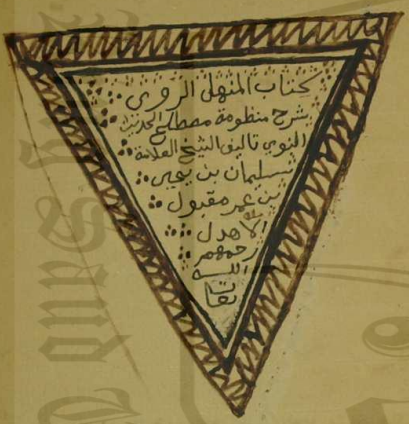 كتاب المنهل الروي
بشرح منظومة مصطلح الحديث
النبوي تاليف الشيخ العلامة
سليمان بن يحيى
بن عمر مقبول
الأهدل
رحمهم
الله
تعا